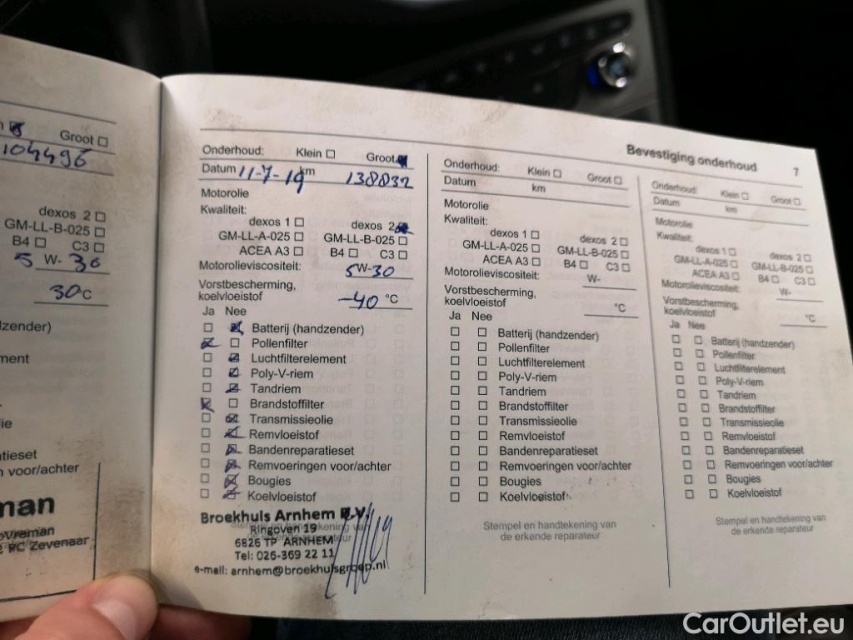 Groot
104496
dexos 2
GM-LL-B-025
B4 C3
5 W- 30
30°C
Onderhoud: Klein Groot
Datum 11-7-19 km 138832
Motorolie
Kwaliteit:
dexos 1 dexos 2
GM-LL-A-025 GM-LL-B-025
ACEA A3 B4 C3
Motorolieviscositeit: 5W-30
Vorstbescherming,
koelvloeistof -40 °C
Ja Nee
Batterij (handzender)
Pollenfilter
Luchtfilterelement
Poly-V-riem
Tandriem
Brandstoffilter
Transmissieolie
Remvloeistof
Bandenreparatieset
Remvoeringen voor/achter
Bougies
Koelvloeistof
Broekhuis Arnhem B.V.
Ringoven 19
6826 TP ARNHEM
Tel: 026-369 22 11
e-mail: arnhem@broekhuisgroep.nl
Bevestiging onderhoud 7
Onderhoud: Klein Groot
Datum km
Motorolie
Kwaliteit:
dexos 1 dexos 2
GM-LL-A-025 GM-LL-B-025
ACEA A3 B4 C3
Motorolieviscositeit: W-
Vorstbescherming,
koelvloeistof °C
Ja Nee
Batterij (handzender)
Pollenfilter
Luchtfilterelement
Poly-V-riem
Tandriem
Brandstoffilter
Transmissieolie
Remvloeistof
Bandenreparatieset
Remvoeringen voor/achter
Bougies
Koelvloeistof
Stempel en handtekening van
de erkende reparateur
Onderhoud: Klein Groot
Datum km
Motorolie
Kwaliteit:
dexos 1 dexos 2
GM-LL-A-025 GM-LL-B-025
ACEA A3 B4 C3
Motorolieviscositeit: W-
Vorstbescherming,
koelvloeistof °C
Ja Nee
Batterij (handzender)
Pollenfilter
Luchtfilterelement
Poly-V-riem
Tandriem
Brandstoffilter
Transmissieolie
Remvloeistof
Bandenreparatieset
Remvoeringen voor/achter
Bougies
Koelvloeistof
Stempel en handtekening van
de erkende reparateur
CarOutlet.eu